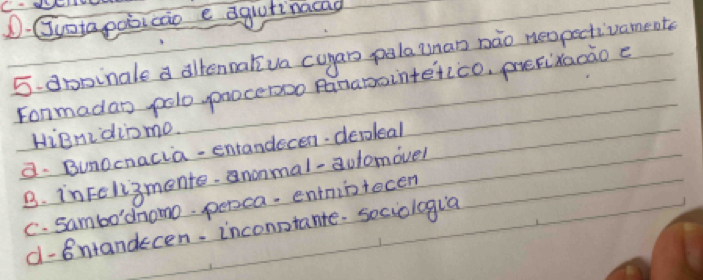 D-Justaposição e aglutinação
5-Assinale a alternativa cujas palavras são respectivamente
Formadas pelo processo Parassintético, prefixação e
Hibridismo.
a- Burocracia-entardecer-desleal
B. infelizmente-anormal-automóvel
C-sambódromo-pesca-entristecer
d-Entardecer-inconstante-sociologia